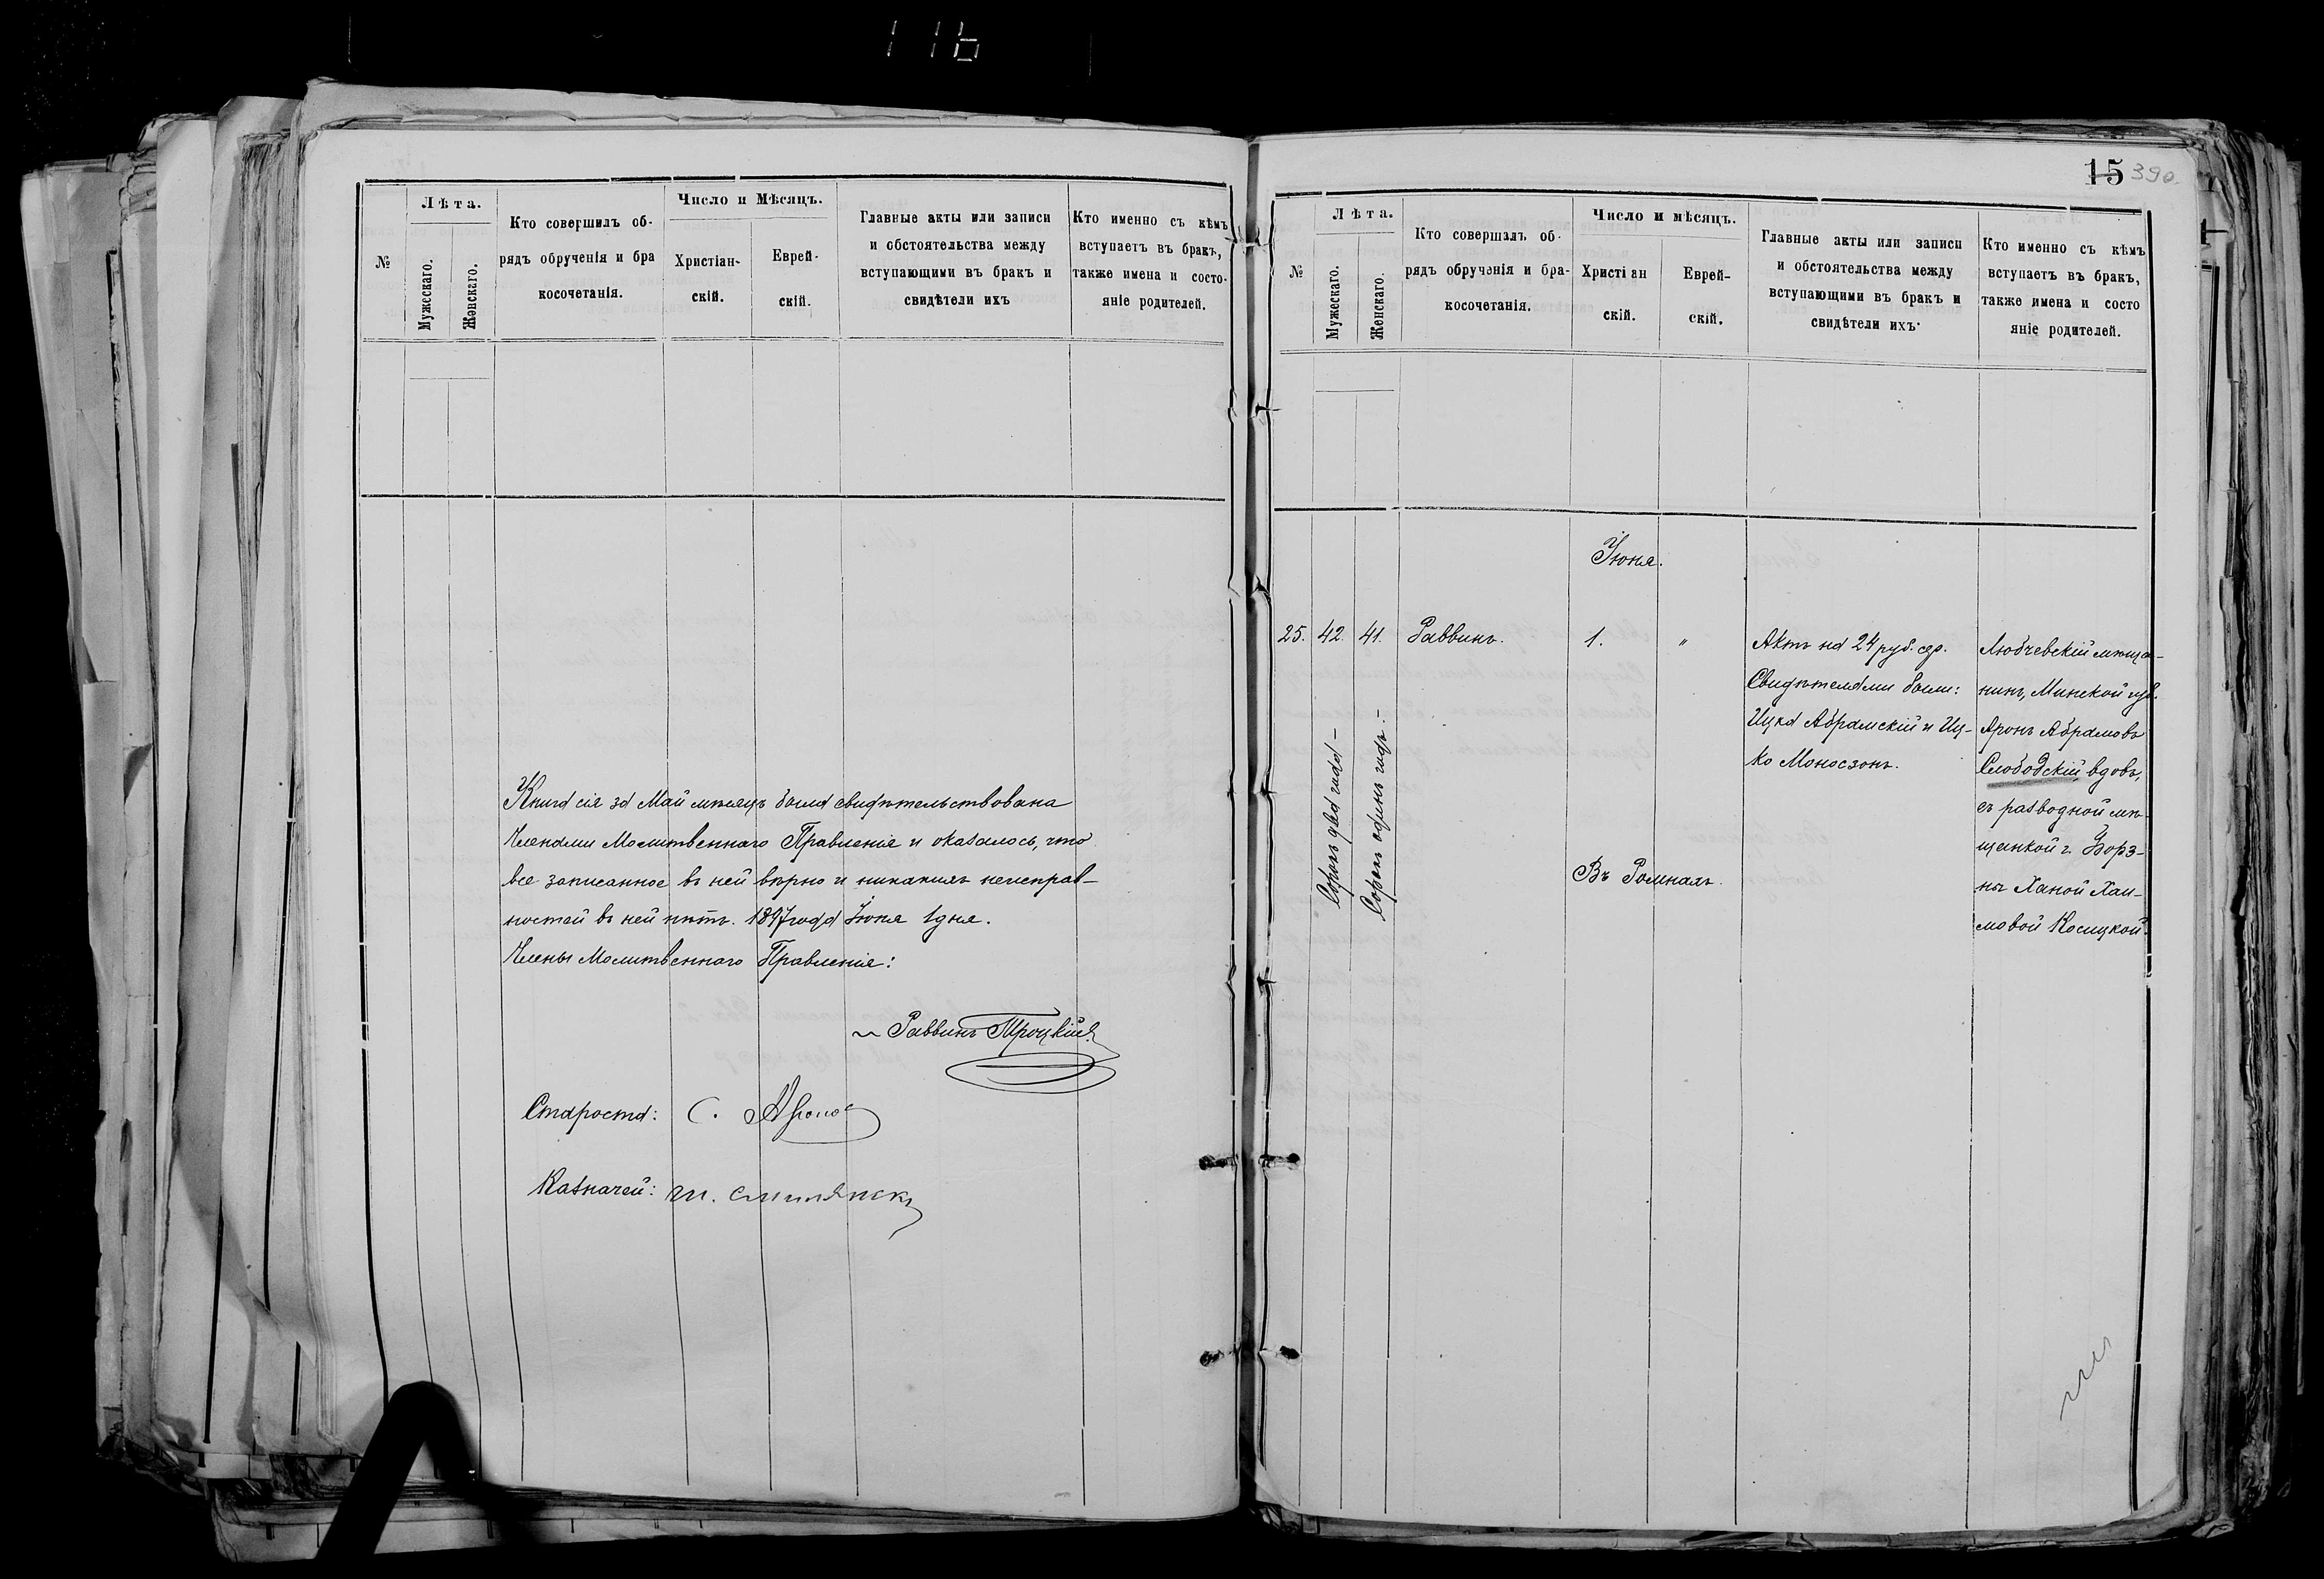 116
№
Лѣта.
Мужескаго.
Женскаго.
Кто совершилъ об-
рядъ обрученія и бра
косочетанія.
Число и Мѣсяцъ.
Христіан-
скій.
Еврей-
скій.
Главные акты или записи
и обстоятельства между
вступающими въ бракъ и
свидѣтели ихъ
Кто именно съ кѣмъ
вступаетъ въ бракъ,
также имена и состо-
яніе родителей.
Книга сія за Май мѣсяцъ была свидѣтельствована
Членами Молитвеннаго Правленія и оказалось, что
все записанное въ ней вѣрно и никакихъ неисправ-
ностей въ ней нѣтъ. 1897 года Іюня 1 дня.
Члены Молитвеннаго Правленія:
Раввинъ Троцкій
Староста: С.
Казначей: М.
15 390.
№
Лѣта.
Мужескаго.
Женскаго.
Кто совершалъ об-
рядъ обрученія и бра-
косочетанія.
Число и мѣсяцъ.
Христіан
скій.
Еврей-
скій.
Главные акты или записи
и обстоятельства между
вступающими въ бракъ и
свидѣтели ихъ
Кто именно съ кѣмъ
вступаетъ въ бракъ,
также имена и состо
яніе родителей.
Іюня.
25. 42. 41. Раввинъ. 1. "
Сорокъ два года –
Сорокъ одинъ годъ. –
Въ Ромнахъ.
Актъ на 24 руб. сер.
Свидѣтелями были:
Ицка Абрамскій и Иц-
ко Моносзонъ.
Любчевскій мѣща-
нинъ, Минской губ.
Аронъ Абрамовъ
Слободскій, вдовъ,
съ разводной мѣ-
щанкой г. Борз-
ны Ханой Хаи-
мовой Косицкой.